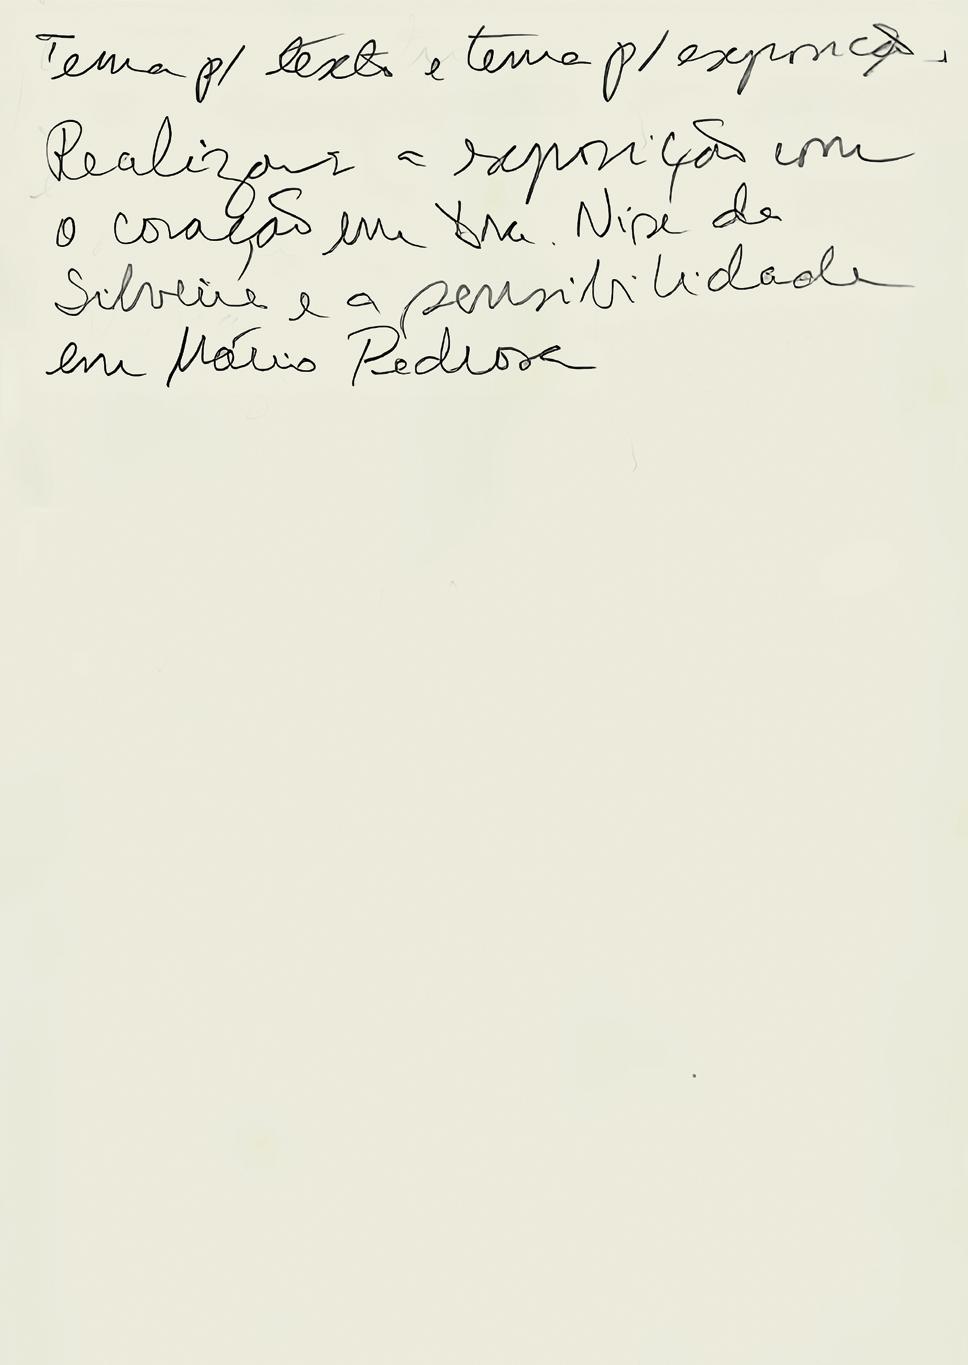 Tema p/ texto e tema p/ exposição.
Realizar a exposição com
o coração em Dra. Nise da
Silveira e a sensibilidade
em Mário Pedrosa